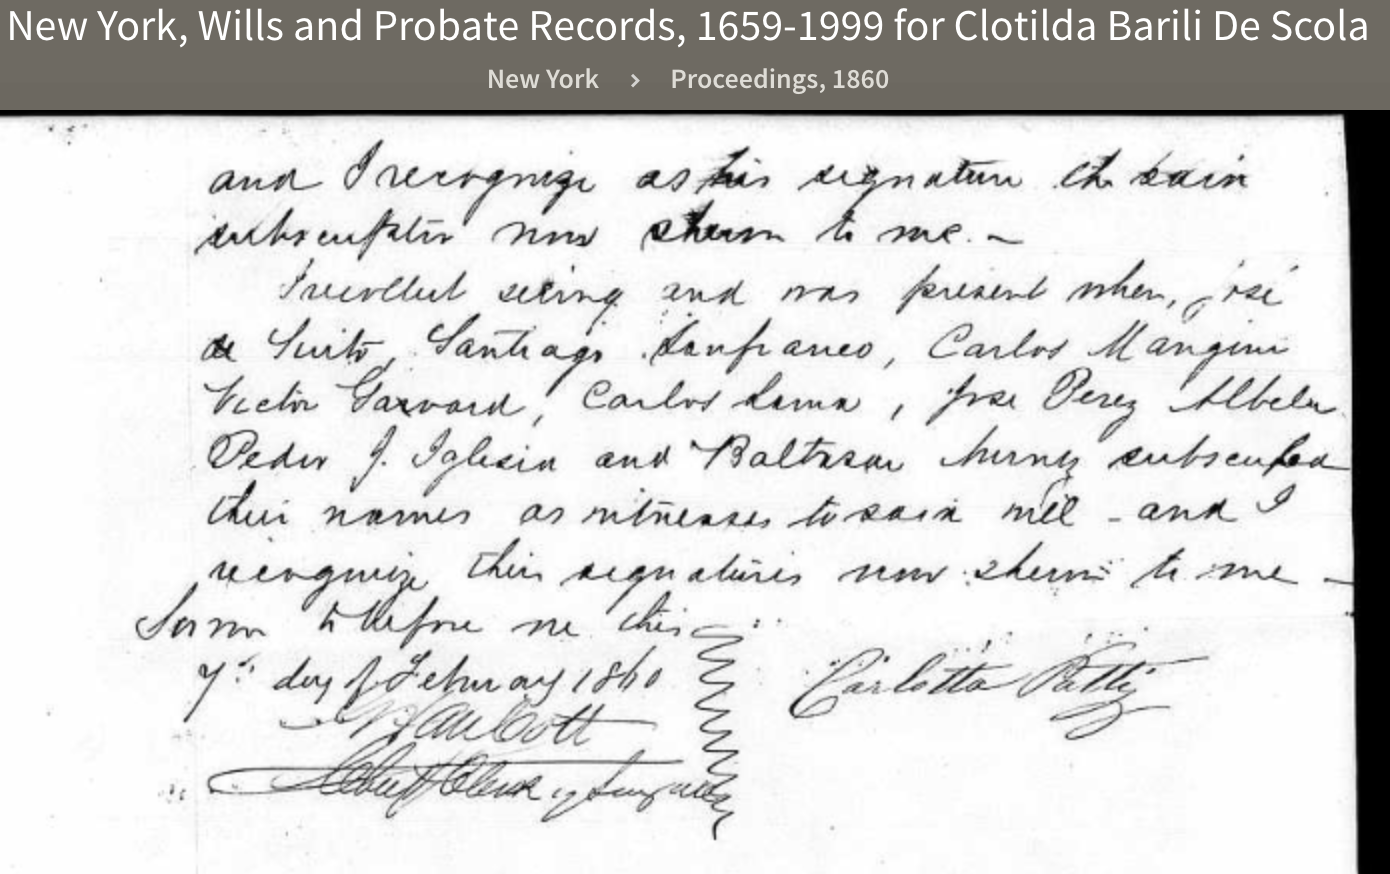 New York, Wills and Probate Records, 1659-1999 for Clotilda Barili De Scola
New York › Proceedings, 1860
and I recognize as his signature the said
subscription now shown to me. –
I recollect seeing and was present when, José
de Santiago Lanfranco, Carlos Mangini
Victor Carlos Lama, Jose Perez
Pedro J. Iglesia and Baltasar subscribed
their names as witnesses to said will - and I
recognize their signatures now shown to me –
Sworn to before me this
7th day of February 1860
Carlotta Patti